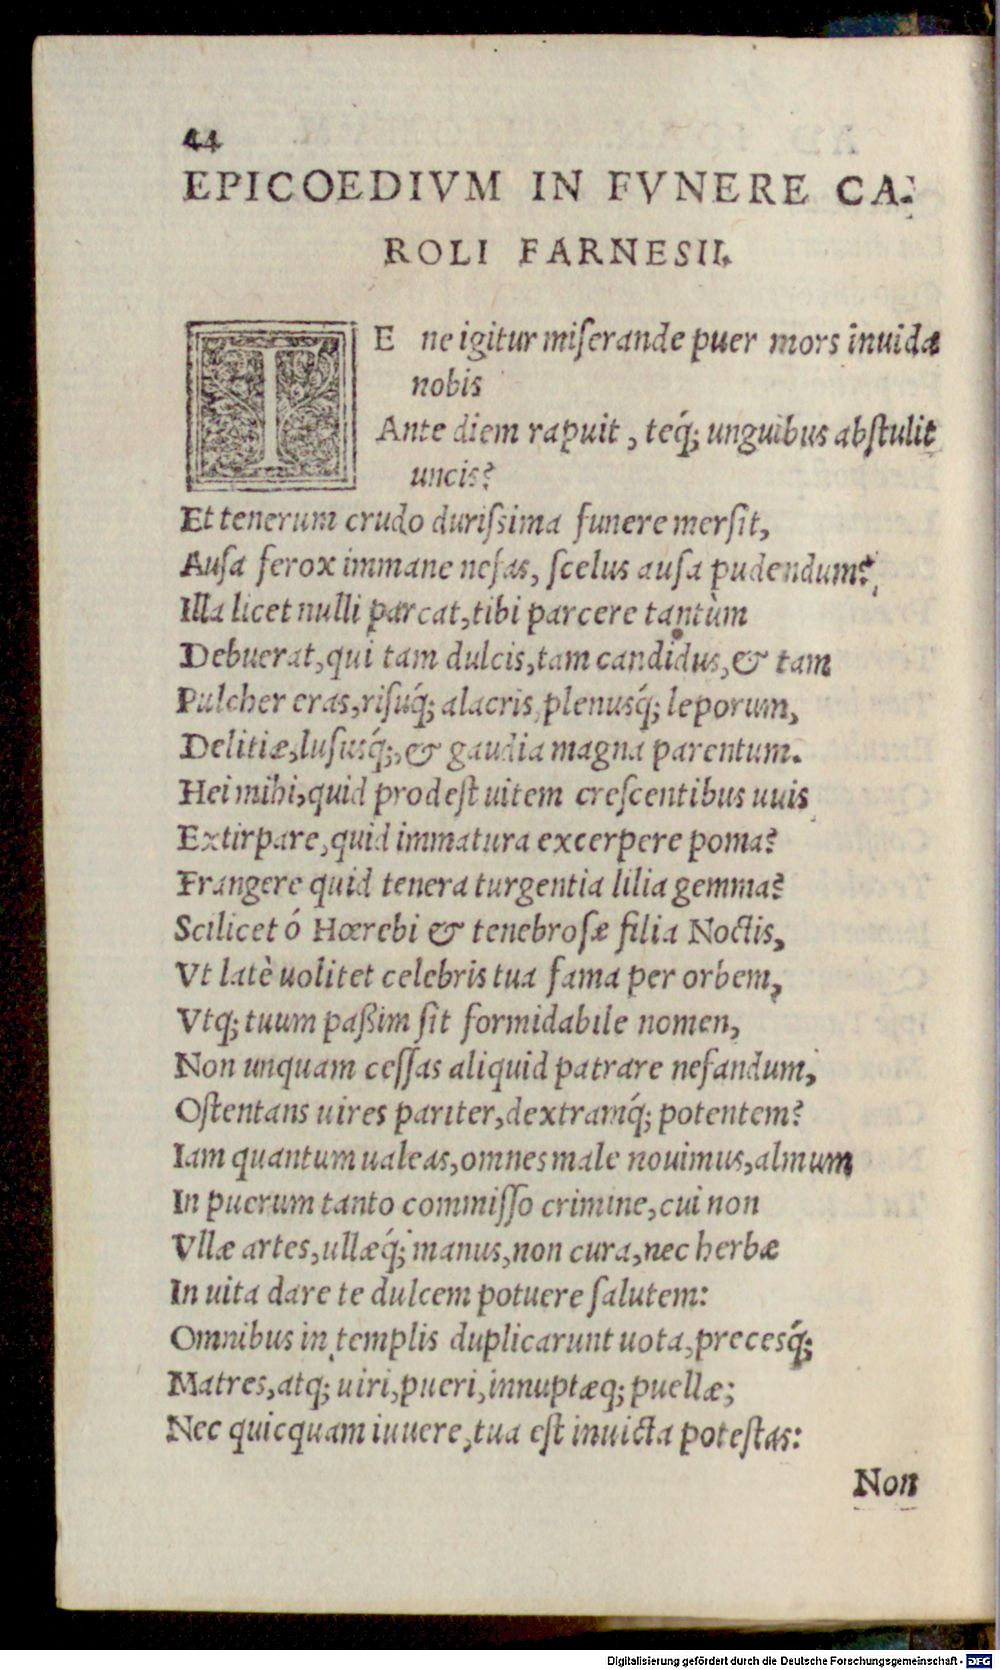 44
EPICOEDIVM IN FVNERE CA-
ROLI FARNESII.
TE ne igitur miſerande puer mors inuida
nobis
Ante diem rapuit, teq́; unguibus abſtulit
uncis?
Et tenerum crudo duriſsima funere merſit,
Auſa ferox immane nefas, ſcelus auſa pudendum?
Illa licet nulli parcat, tibi parcere tantùm
Debuerat, qui tam dulcis, tam candidus, & tam
Pulcher eras, riſuq́; alacris, plenusq́; leporum,
Delitiæ, luſusq́;, & gaudia magna parentum.
Hei mihi, quid prodeſt uitem creſcentibus uuis
Extirpare, quid immatura excerpere poma?
Frangere quid tenera turgentia lilia gemma?
Scilicet ó Hœrebi & tenebroſæ filia Noctis,
Vt latè uolitet celebris tua fama per orbem,
Vtq; tuum paßim ſit formidabile nomen,
Non unquam ceſſas aliquid patrare nefandum,
Oſtentans uires pariter, dextramq́; potentem?
Iam quantum ualeas, omnes male nouimus, almum
In puerum tanto commiſſo crimine, cui non
Vllæ artes, ullæq́; manus, non cura, nec herbæ
In uita dare te dulcem potuere ſalutem:
Omnibus in templis duplicarunt uota, precesq́;
Matres, atq; uiri, pueri, innuptæq; puellæ;
Nec quicquam iuuere, tua eſt inuicta poteſtas:
Non
Digitalisierung gefördert durch die Deutsche Forschungsgemeinschaft - DFG